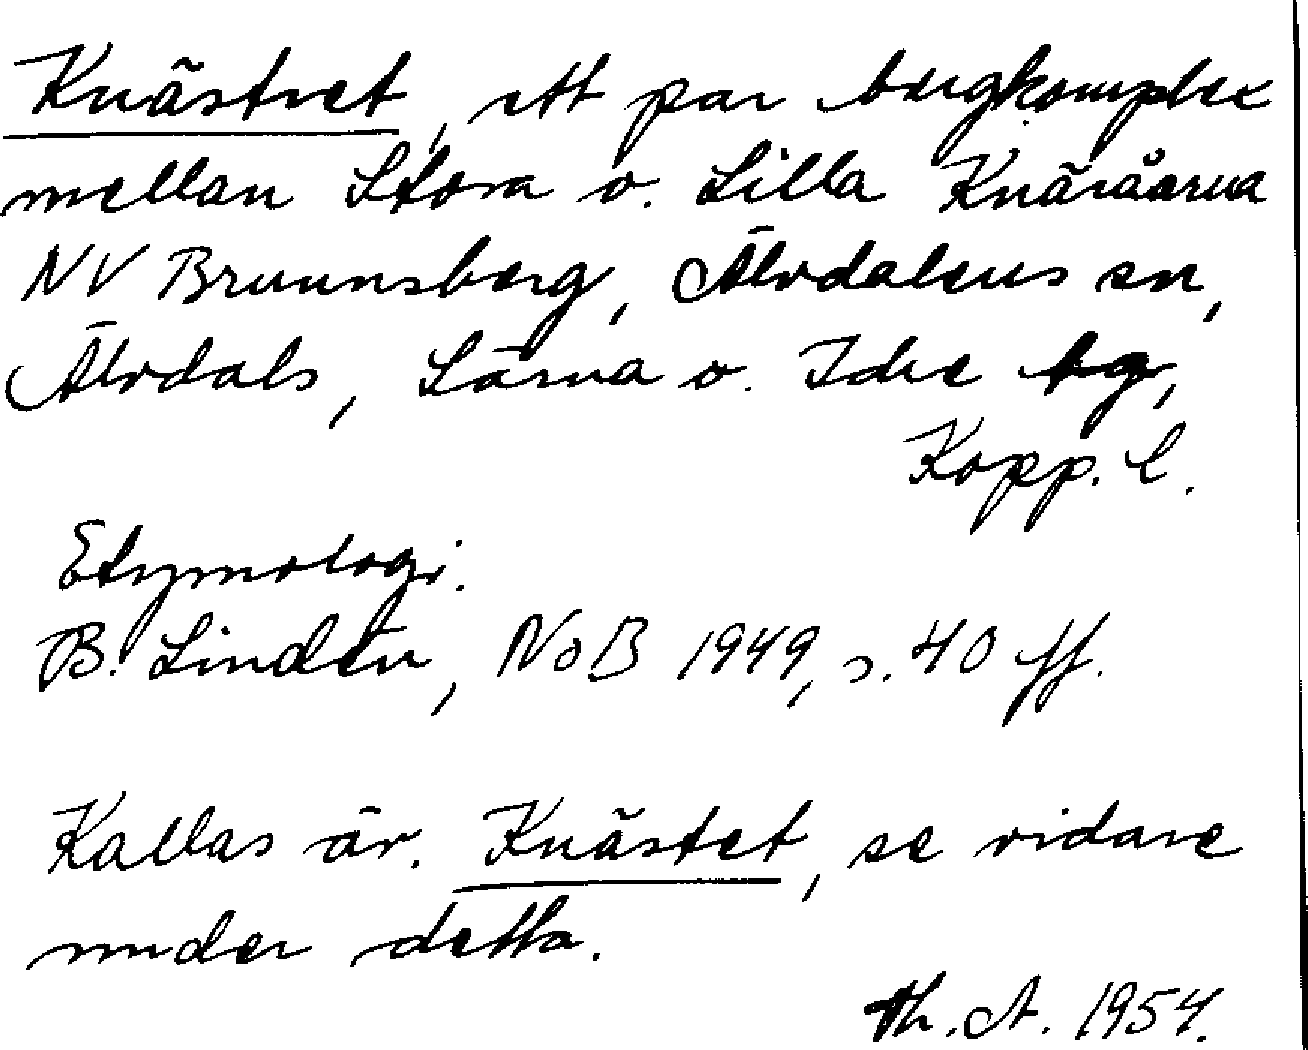 Knästret, ett par bergkomplex
mellan Stora o. Lilla Knäråarna
NV Brunnsberg, Älvdalens sn,
Älvdals, Särna o. Idre tg,
Kopp. l.
Etymologi.
B. Lindén, NoB 1949, s. 40 ff.
Kallas äv. Knästet, se vidare
under detta.
Th. A. 1954.